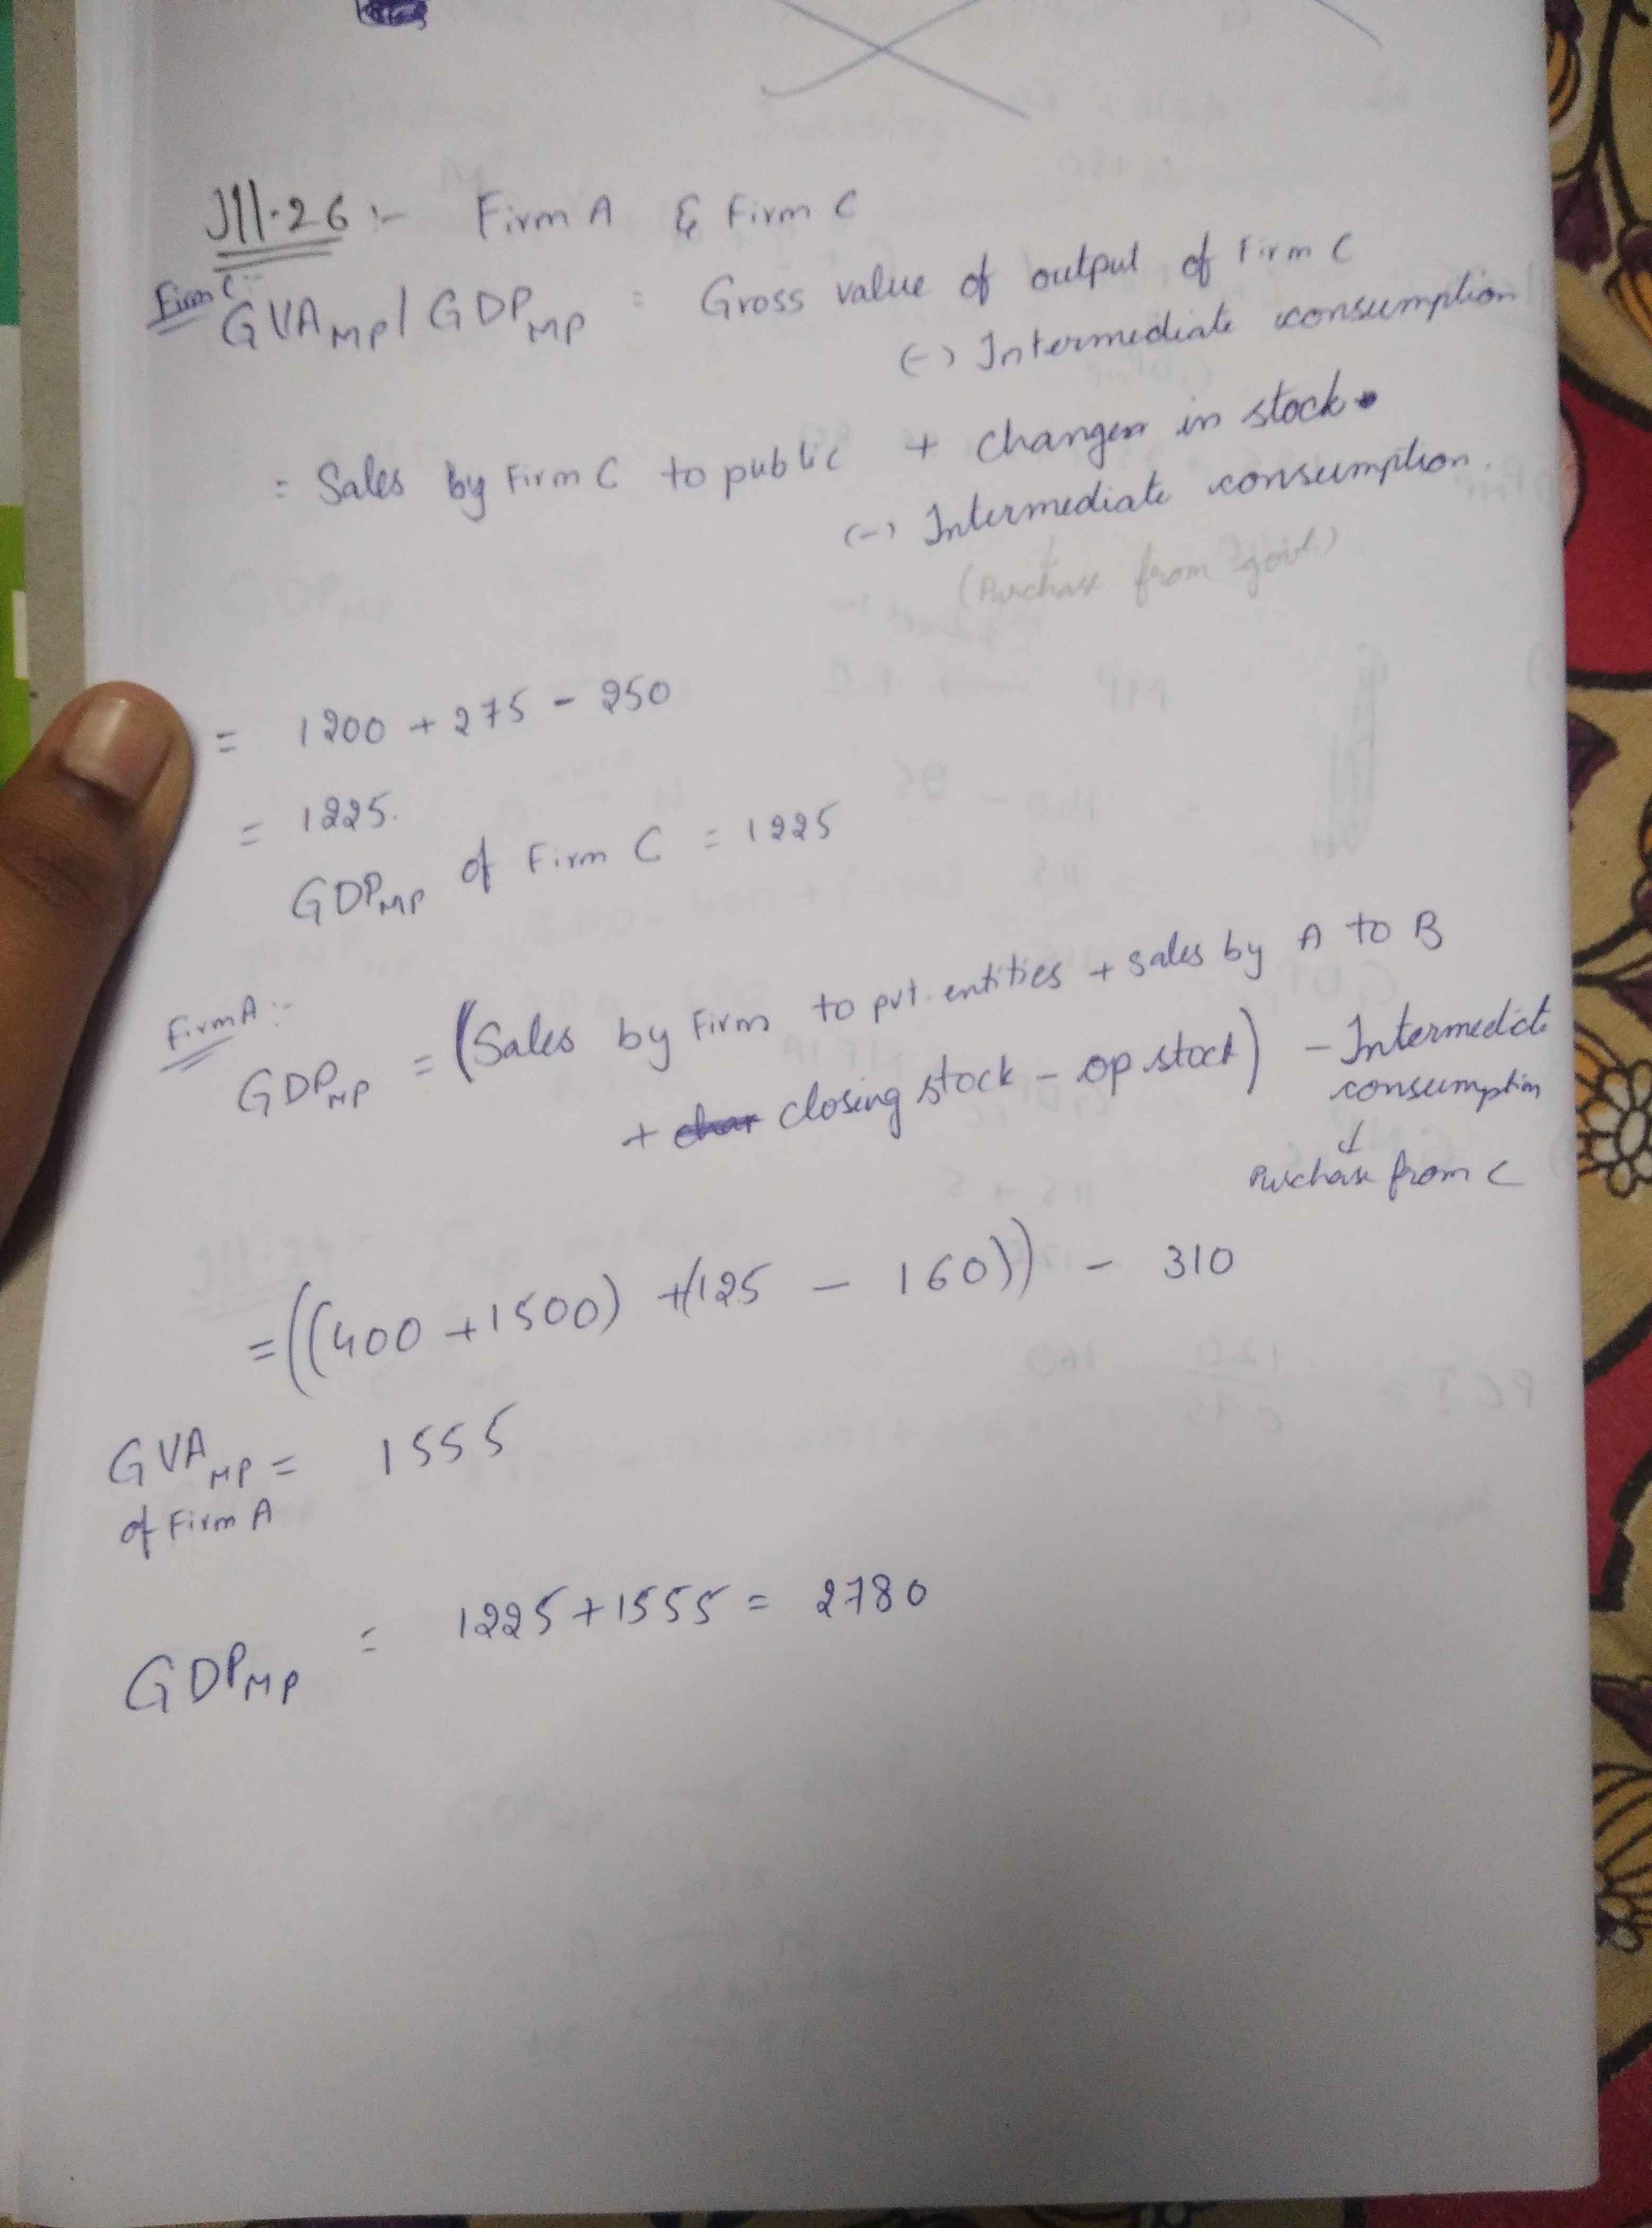 Ill.26 :- Firm A & Firm C
Firm C:-
GVAMP / GDPMP = Gross value of output of Firm C
(-) Intermediate consumption
= Sales by Firm C to public + changes in stock
(-) Intermediate consumption.
(Purchase from govt)
= 1200 + 275 - 250
= 1225.
GDPMP of Firm C = 1225
Firm A :-
GDPMP = (Sales by Firm to pvt. entities + sales by A to B
+ closing stock - op stock) - Intermediate
consumption
↓
Purchase from C
= ((400 + 1500) + (125 - 160)) - 310
GVAMP = 1555
of Firm A
GDPMP = 1225 + 1555 = 2780